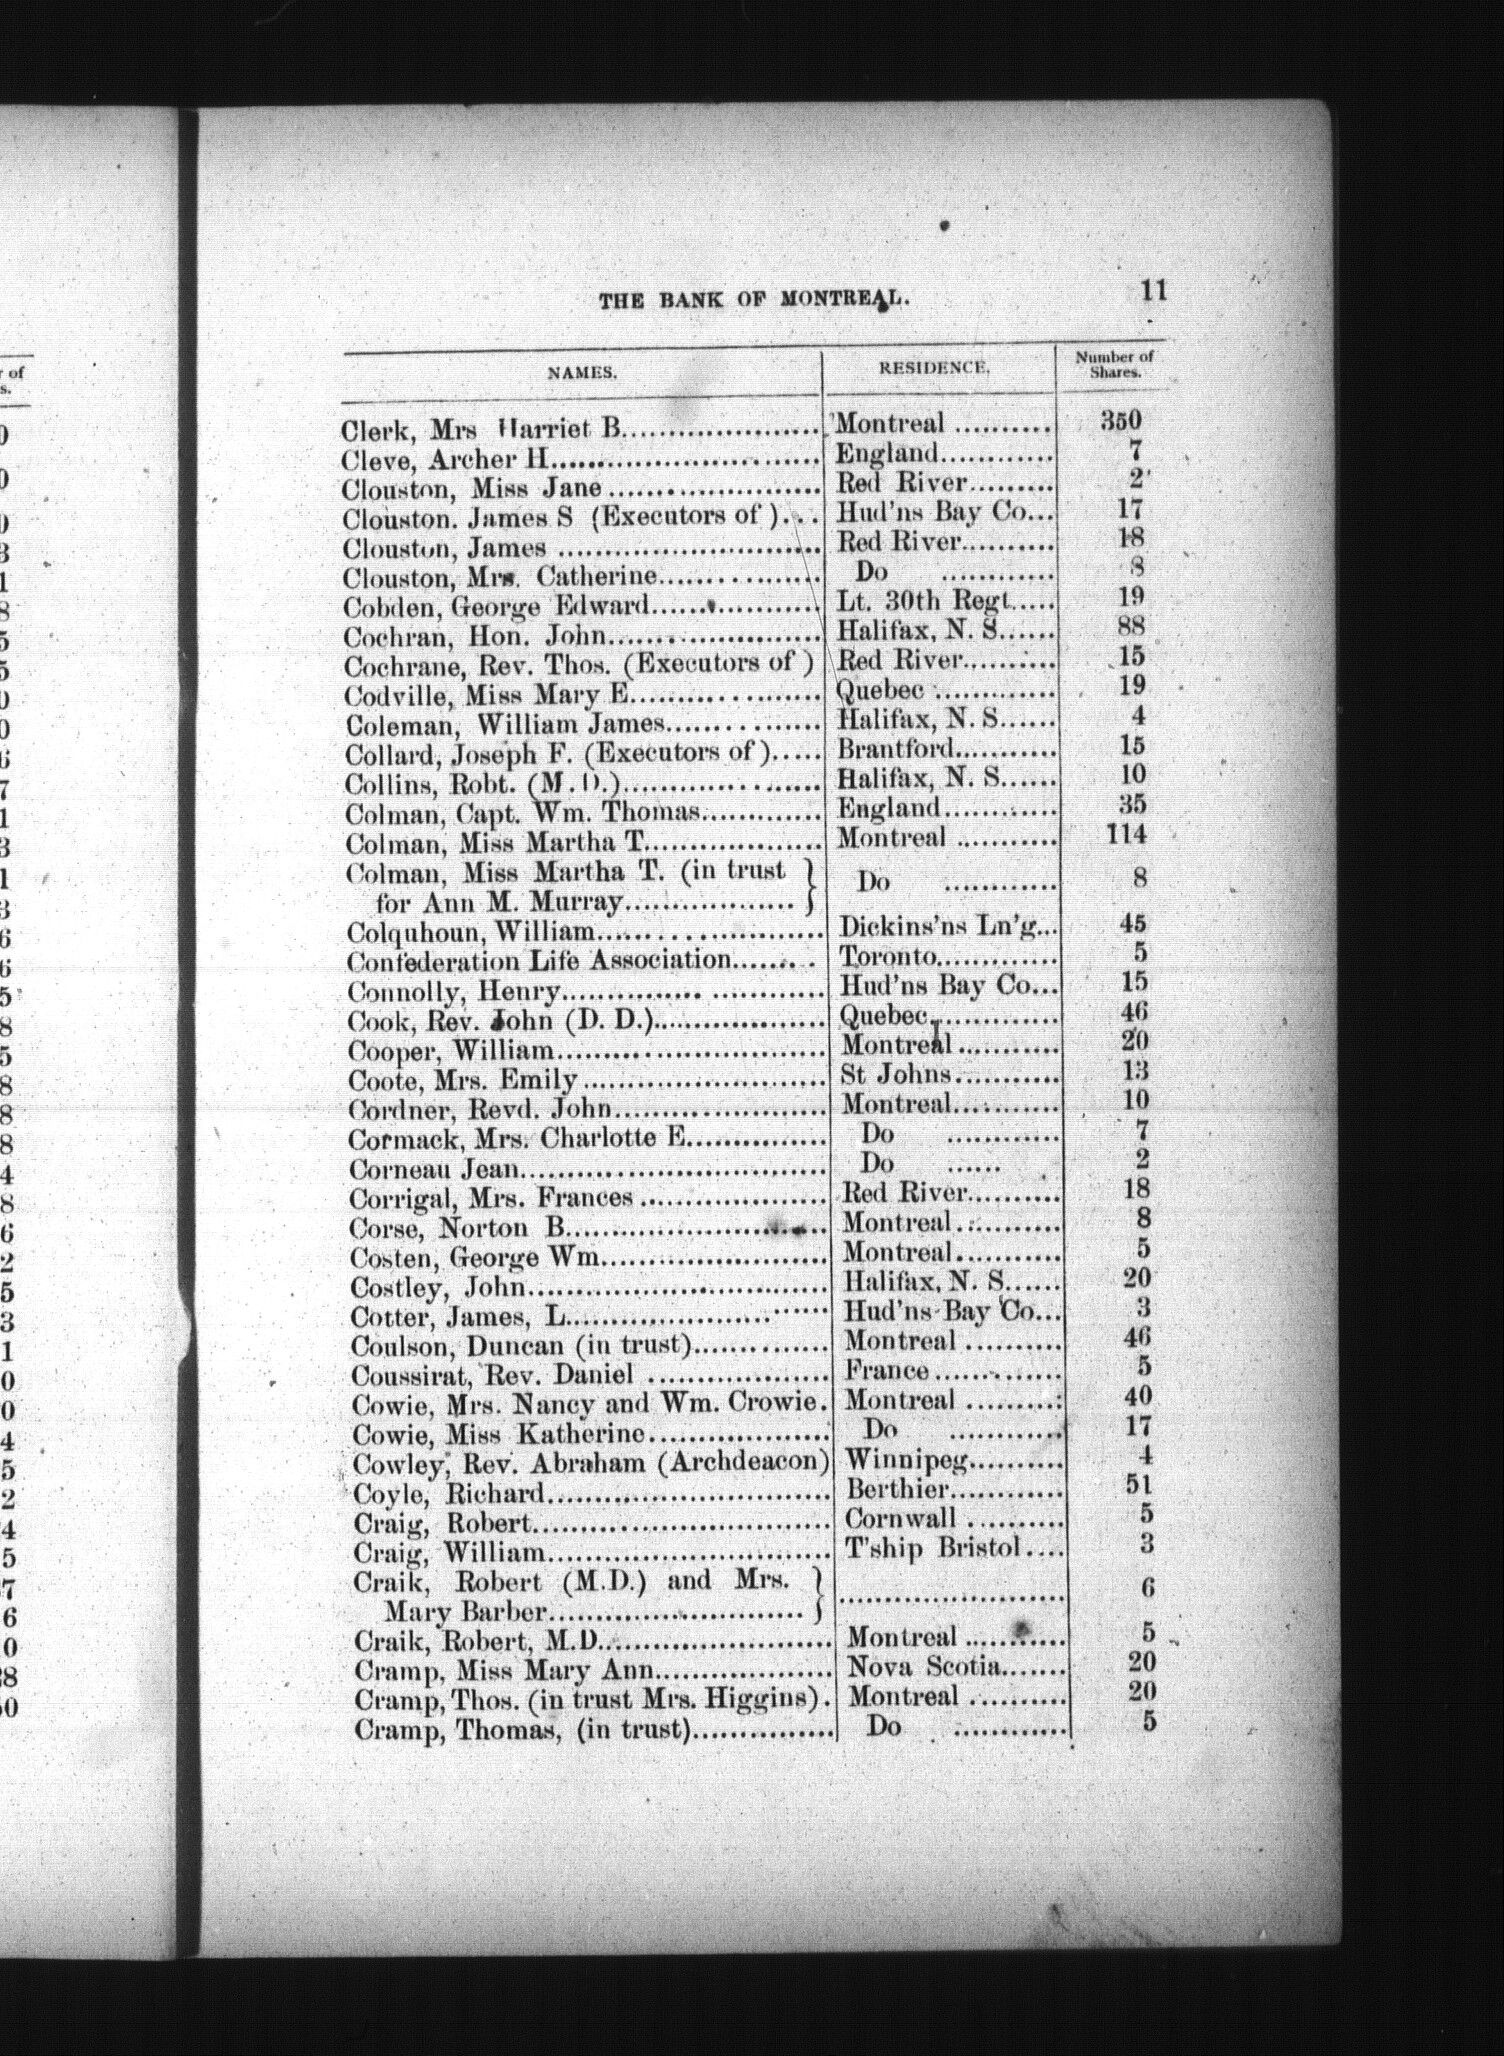 THE BANK OF MONTREAL. 11
NAMES. RESIDENCE. Number of Shares.
Clerk, Mrs Harriet B. Montreal 350
Cleve, Archer H. England 7
Clouston, Miss Jane Red River 2
Clouston. James S (Executors of) Hud'ns Bay Co. 17
Clouston, James Red River 18
Clouston, Mrs. Catherine Do 8
Cobden, George Edward Lt. 30th Regt. 19
Cochran, Hon. John Halifax, N. S. 88
Cochrane, Rev. Thos. (Executors of) Red River 15
Codville, Miss Mary E. Quebec 19
Coleman, William James Halifax, N. S. 4
Collard, Joseph F. (Executors of) Brantford 15
Collins, Robt. (M. D.) Halifax, N. S. 10
Colman, Capt. Wm. Thomas England 35
Colman, Miss Martha T. Montreal 114
Colman, Miss Martha T. (in trust
for Ann M. Murray Do 8
Colquhoun, William Dickins'ns Ln'g. 45
Confederation Life Association Toronto 5
Connolly, Henry Hud'ns Bay Co. 15
Cook, Rev. John (D. D.) Quebec 46
Cooper, William Montreal 20
Coote, Mrs. Emily St Johns 13
Cordner, Revd. John Montreal 10
Cormack, Mrs. Charlotte E. Do 7
Corneau Jean Do 2
Corrigal, Mrs. Frances Red River 18
Corse, Norton B. Montreal 8
Costen, George Wm. Montreal 5
Costley, John Halifax, N. S. 20
Cotter, James, L. Hud'ns Bay Co. 3
Coulson, Duncan (in trust) Montreal 46
Coussirat, Rev. Daniel France 5
Cowie, Mrs. Nancy and Wm. Crowie. Montreal 40
Cowie, Miss Katherine Do 17
Cowley, Rev. Abraham (Archdeacon) Winnipeg 4
Coyle, Richard Berthier 51
Craig, Robert Cornwall 5
Craig, William T'ship Bristol 3
Craik, Robert (M.D.) and Mrs.
Mary Barber 6
Craik, Robert, M.D. Montreal 5
Cramp, Miss Mary Ann Nova Scotia 20
Cramp, Thos. (in trust Mrs. Higgins). Montreal 20
Cramp, Thomas, (in trust) Do 5